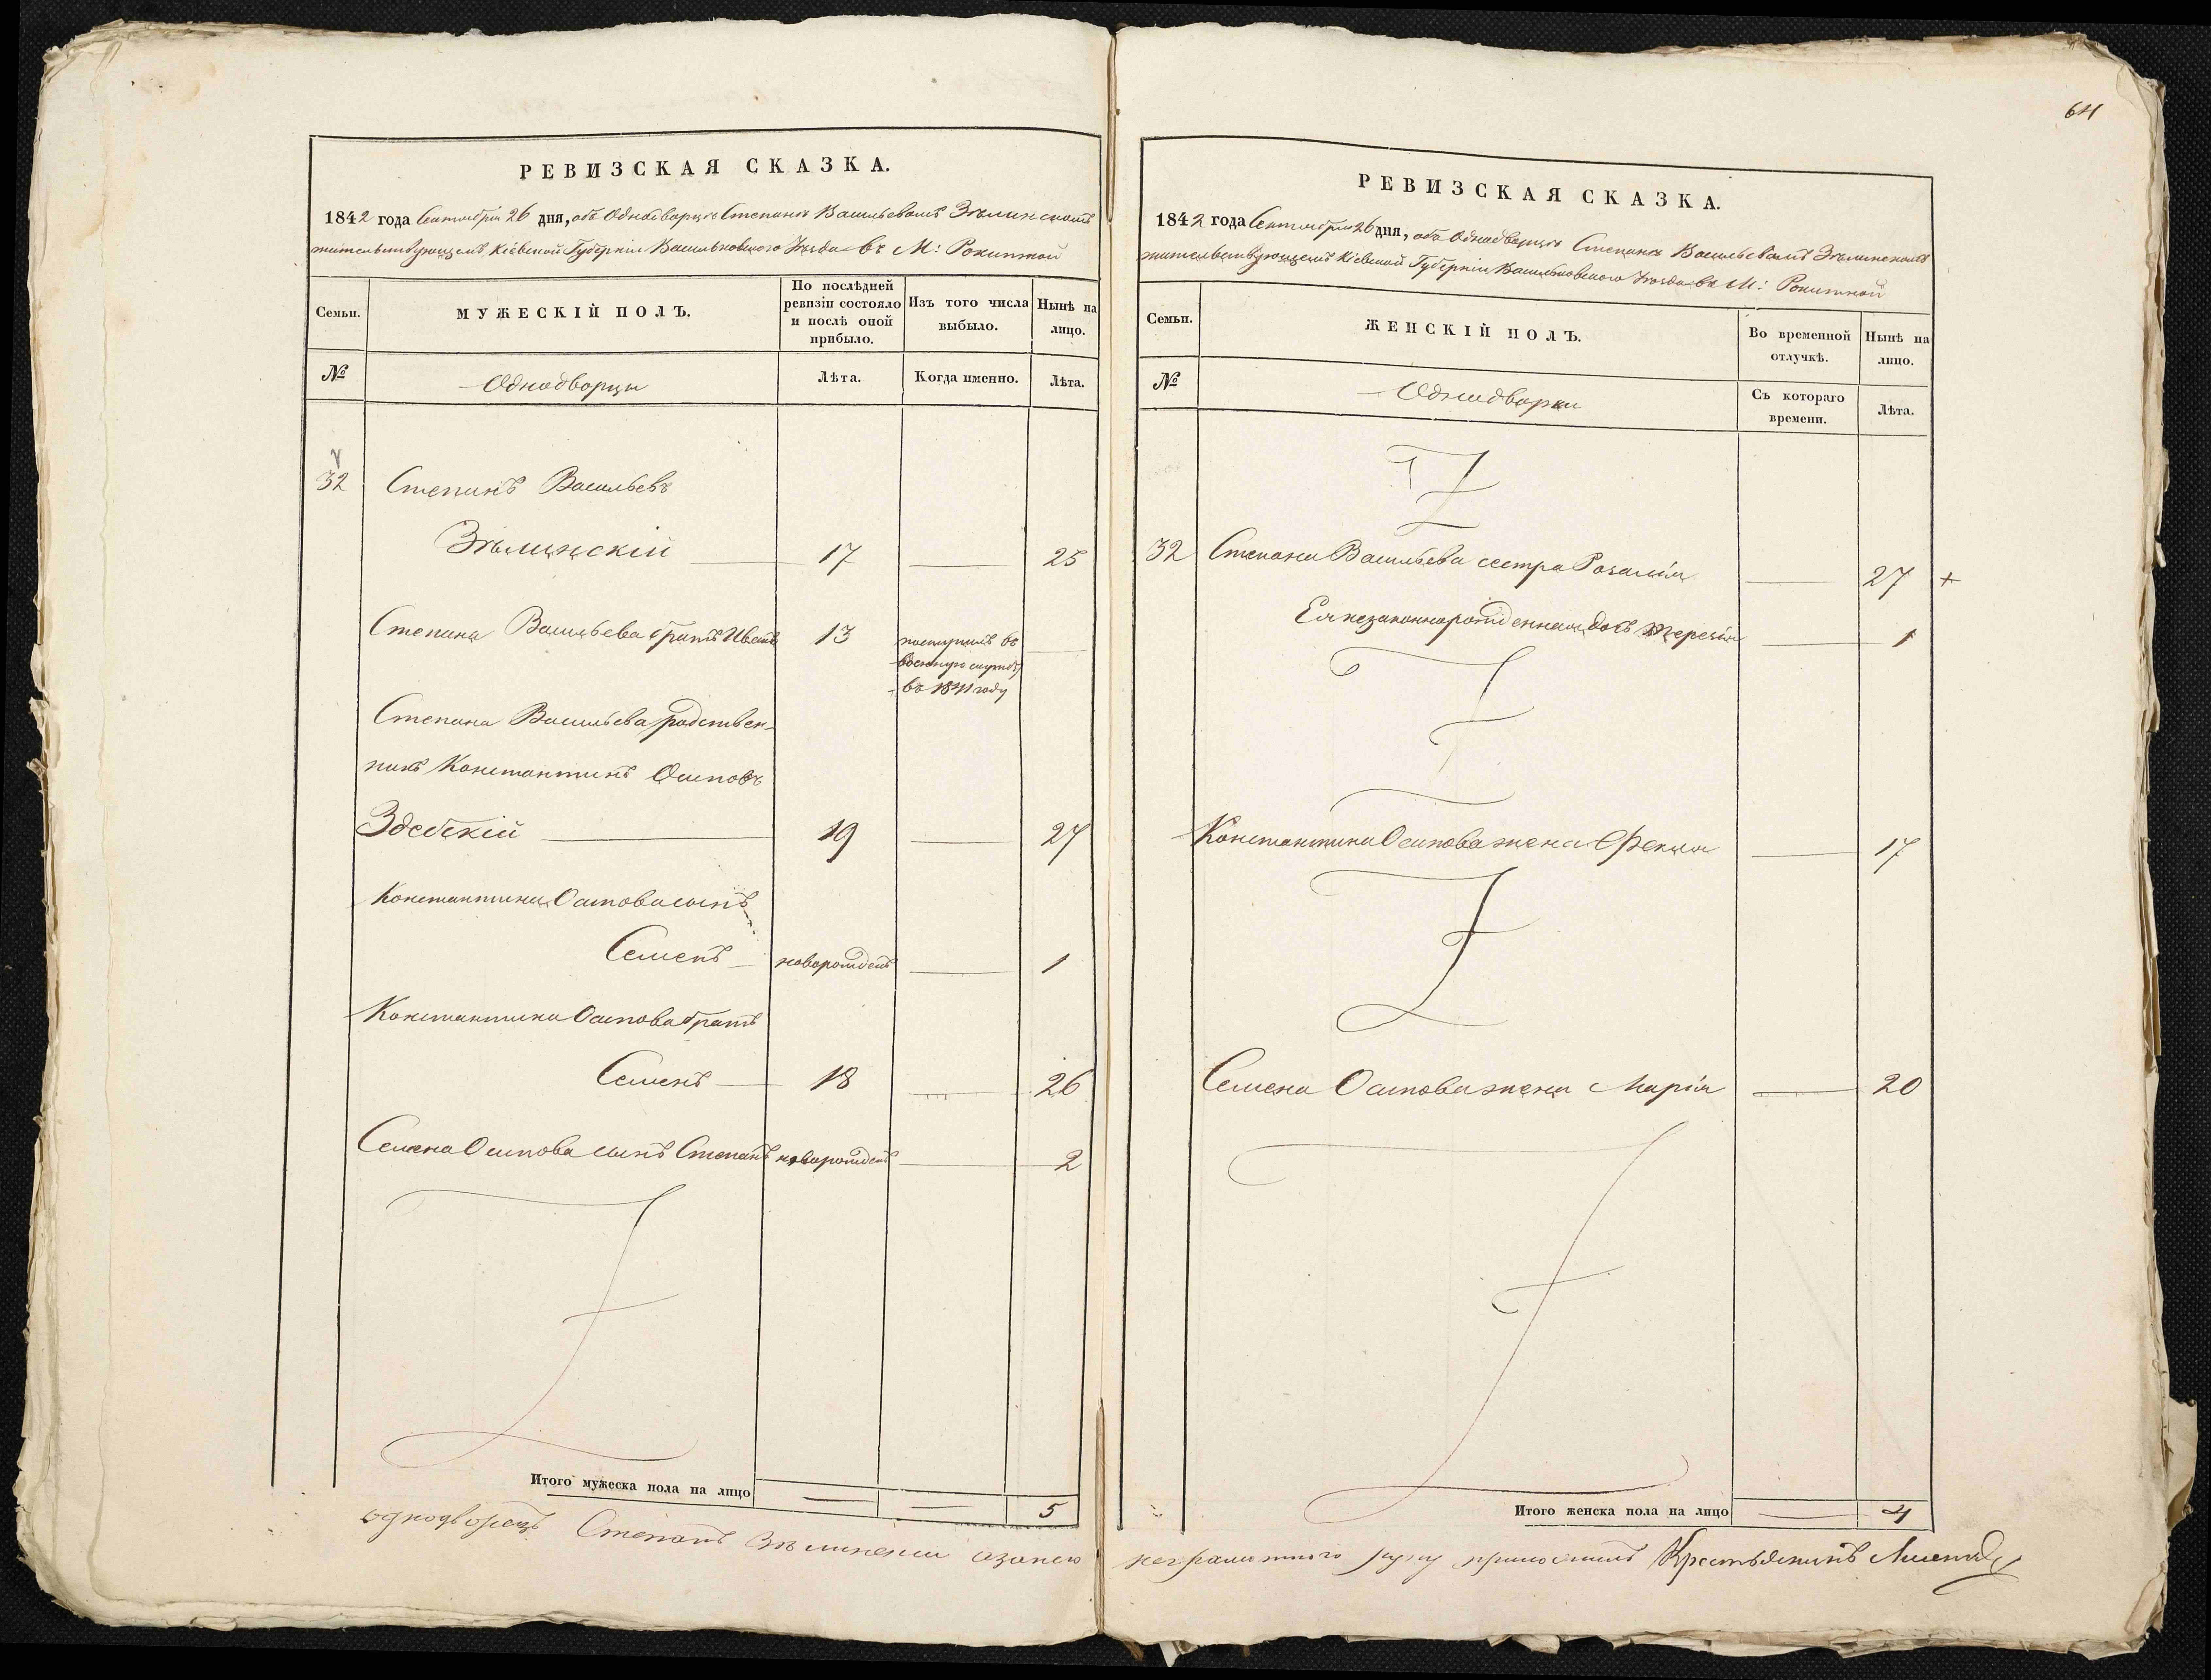 РЕВИЗСКАЯ СКАЗКА.
1842 года Сентября 26 дня, объ Однодворцѣ Степанѣ Васильевомъ Зѣлинскомъ
жительствующемъ Кіевской Губерніи Васильковского Уѣзда въ М: Рокитной
Семьи.
МУЖЕСКІЙ ПОЛЪ.
По послѣдней ревизіи состояло и послѣ оной прибыло.
Изъ того числа выбыло.
Нынѣ на лицо.
№
Однодворцы
Лѣта.
Когда именно.
Лѣта.
32 Степанъ Васильевъ
Зѣлинскій 17 25
Степана Васильева братъ Иванъ 13 поступилъ въ
военную службу
въ 1841 году
Степана Васильева родствен-
никъ Константинъ Осиповъ
Здебскій 19 27
Константина Осипова сынъ
Семенъ новорожденъ 1
Константина Осипова братъ
Семенъ 18 26
Семена Осипова сынъ Степанъ новорожденъ 2
Итого мужеска пола на лицо 5
однодворецъ Степанъ Зѣлинский
64
РЕВИЗСКАЯ СКАЗКА.
1842 года Сентября 26 дня, объ Однодворцѣ Степанѣ Васильевомъ Зѣлинскомъ
жительствующемъ Кіевской Губерніи Васильковского Уѣзда въ М: Рокитной
Семьи.
ЖЕНСКІЙ ПОЛЪ.
Во временной отлучкѣ.
Нынѣ на лицо.
№
Однодворки
Съ котораго времени.
Лѣта.
32 Степана Васильева сестра Розалія 27 +
Ея незаконнорожденная дочь Терезія 1
Константина Осипова жена Фекла 17
Семена Осипова жена Марія 20
Итого женска пола на лицо 4
неграмотного руку приложилъ Крестьянинъ